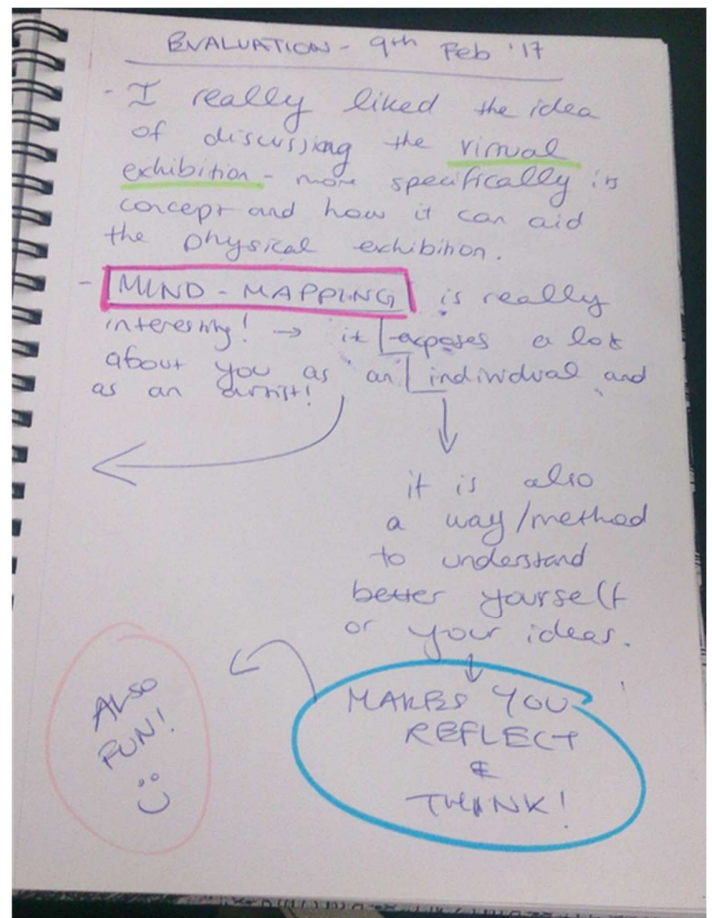 EVALUATION - 9th Feb '17
- I really liked the idea
of discussing the virtual
exhibition - more specifically its
concept and how it can aid
the physical exhibition.
- MIND-MAPPING is really
interesting! → it exposes a lot
about you as an individual and
as an artist!
it is also
a way/method
to understand
better yourself
or your ideas.
MAKES YOU
REFLECT
&
THINK!
ALSO
FUN!